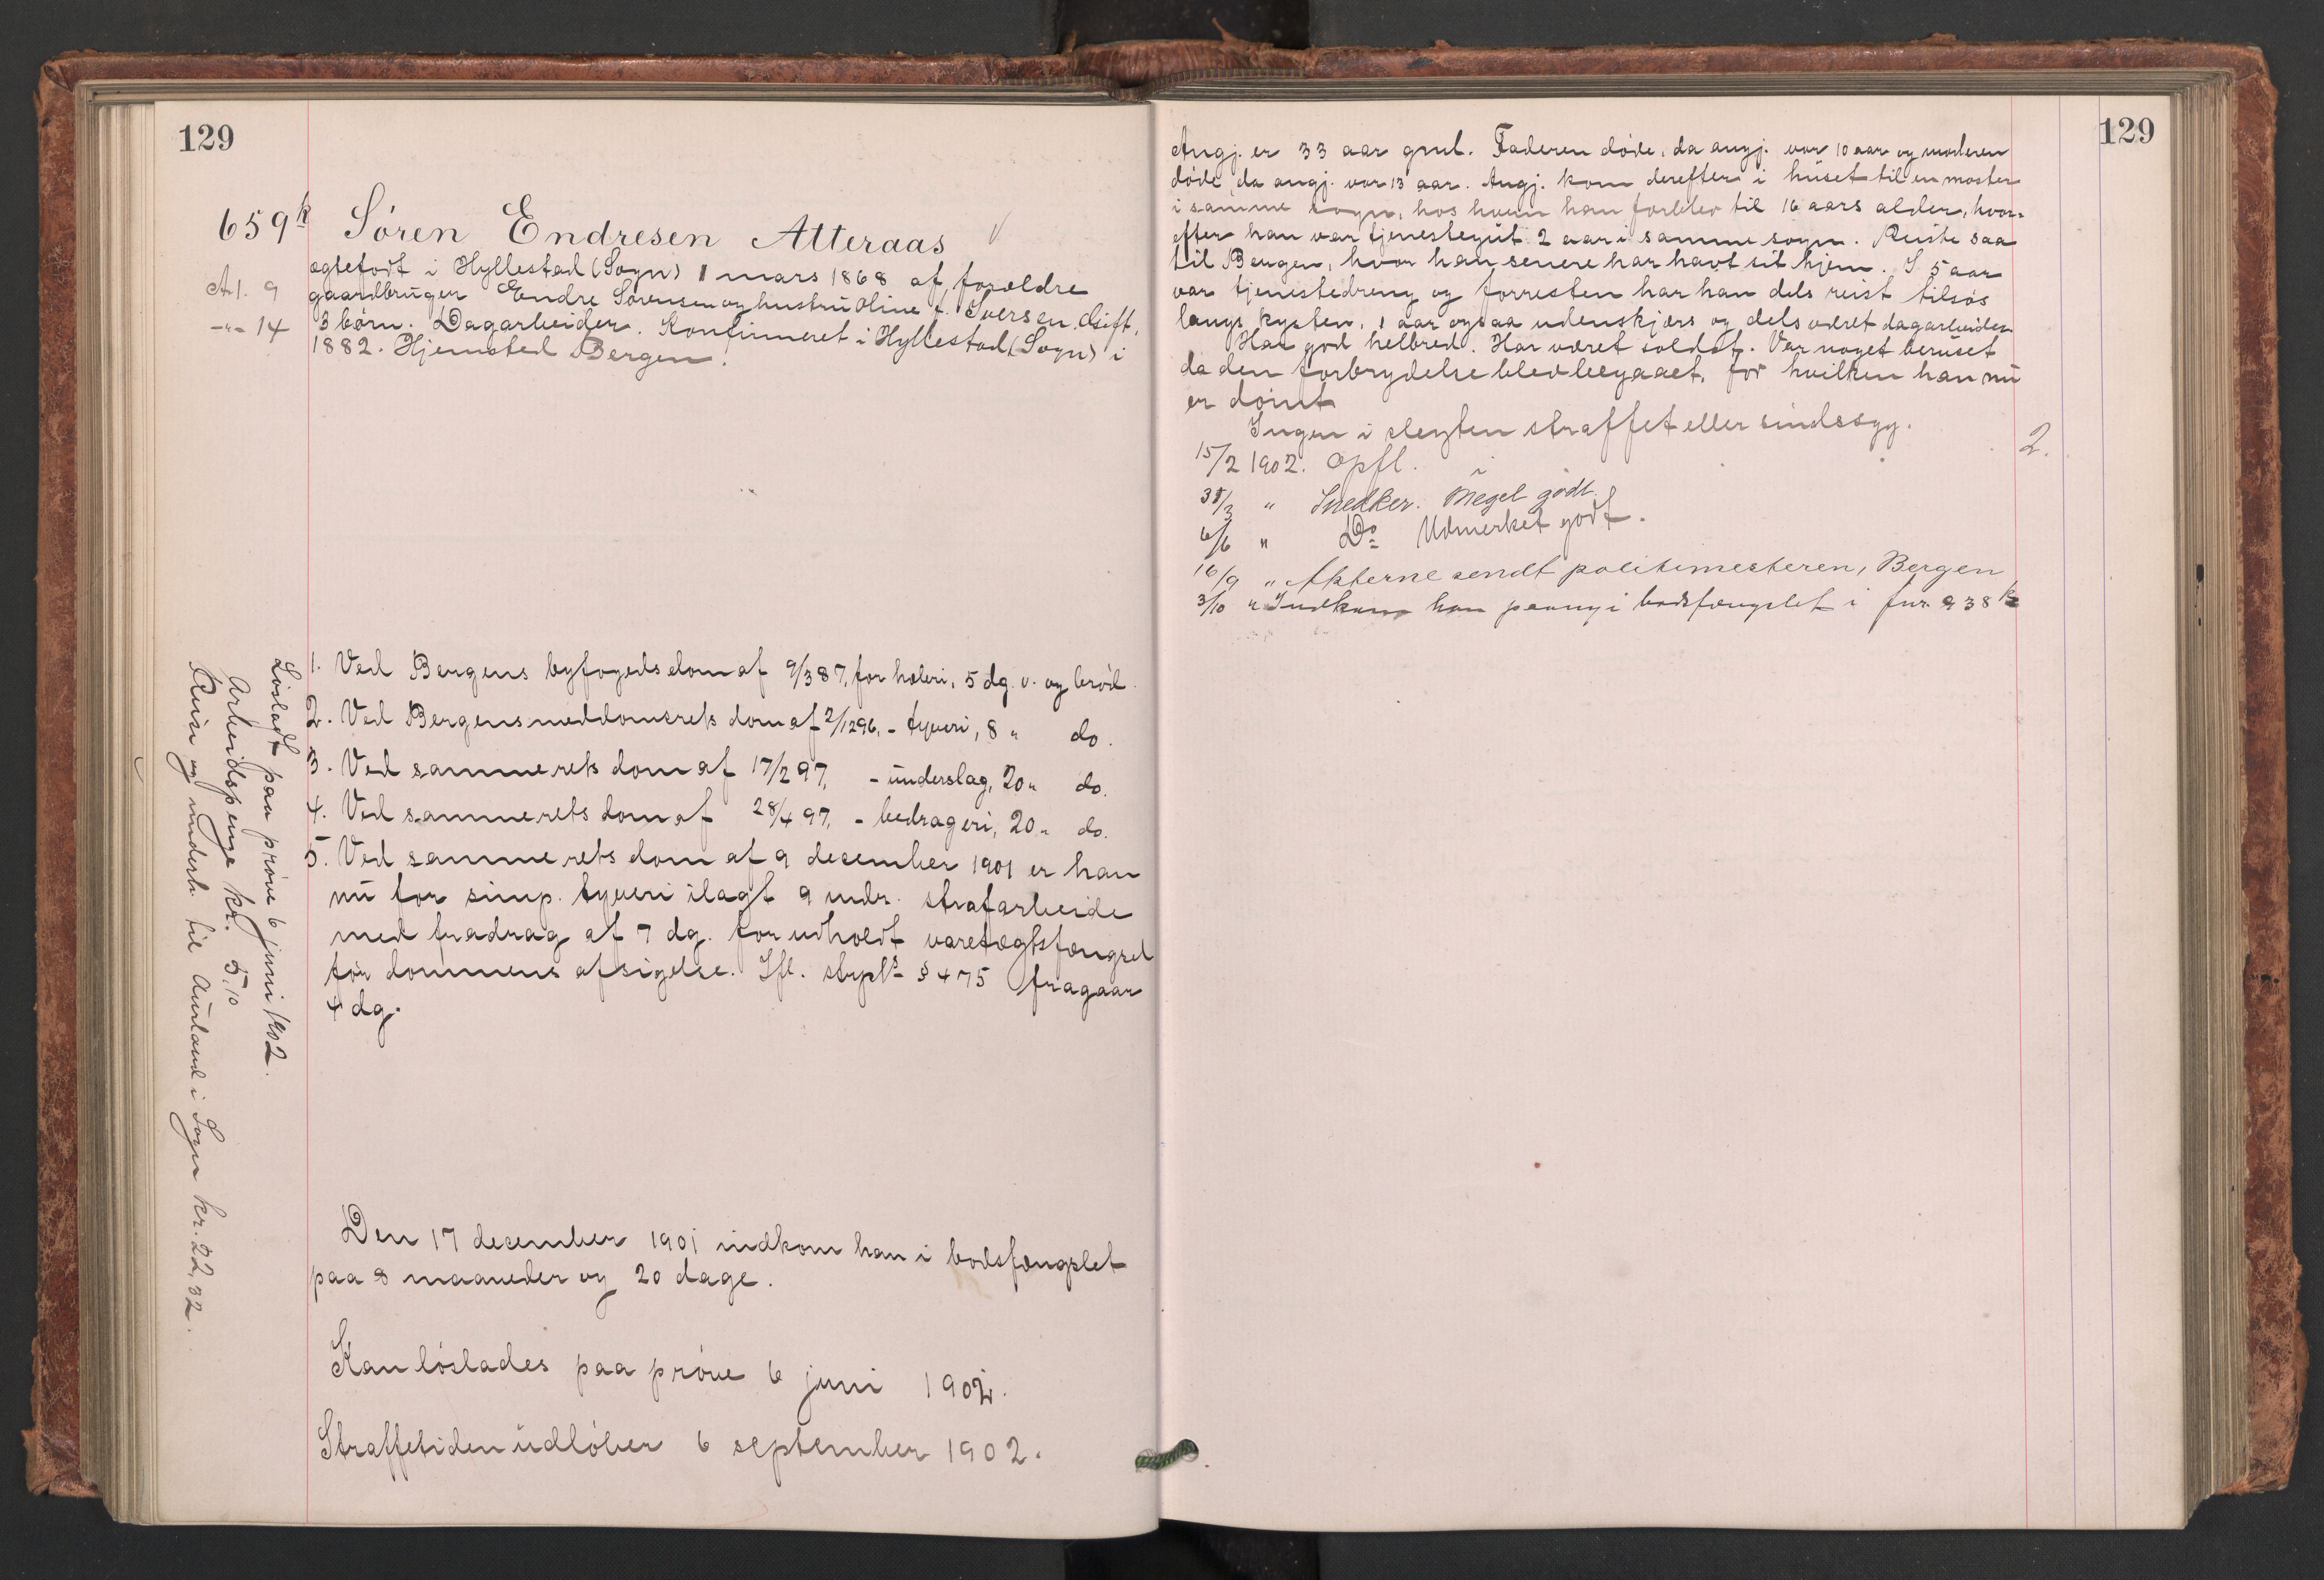 129
659k Sören Endresen Atteraas
A1. 9
-"- 14
ægtefödt i Hyllestad (Sogn) 1 mars 1868 af forældre
gaardbruger Endre Sörensen og hustru Oline f. Iversen. Gift,
3 börn. Dagarbeider. Konfirmeret i Hyllestad (Sogn) i
1882. Hjemsted Bergen.
1. Ved Bergens byfogeds dom af 9/3 87, for hæleri, 5 dg. v. og bröd.
2. Ved Bergens meddomsrets dom af 2/12 96, - tyveri, 8 " do.
3. Ved samme rets dom af 17/2 97, - underslag, 20 " do.
4. Ved samme rets dom af 28/4 97, - bedrageri, 20 " do.
5. Ved samme rets dom af 9 december 1901 er han
nu for simp. tyveri ilagt 9 mdr. strafarbeide
med fradrag af 7 dg. for udholdt varetægtsfængsel
för dommens afsigelse. Ifl. strpl's § 475 fragaar
4 dg.
Den 17 december 1901 indkom han i bodsfængslet
paa 8 maaneder og 20 dage.
Kan löslades paa pröve 6 juni 1902.
Straffetiden udlöber 6 september 1902.
Lösladt paa pröve 6 juni 1902.
Arbeidspenge kr. 5,10
Reise og underh. til Aurland i Sogn kr. 22,32.
129
Angj. er 33 aar gml. Faderen döde, da angj. var 10 aar og moderen
döde, da angj. var 13 aar. Angj. kom derefter i huset til en moster
i samme sogn, hos hvem han forblev til 16 aars alder, hvor-
efter han var tjenestegut 2 aar i samme sogn. Reiste saa
til Bergen, hvor han senere har havt sit hjem. I 5 aar
var tjenestedreng og forresten har han dels reist tilsös
langs kysten, 1 aar ogsaa udenskjærs og dels været dagarbeider.
Har god helbred. Har været soldat. Var noget beruset
da den forbrydelse blev begaaet, for hvilken han nu
er dömt
Ingen i slegten straffet eller sindssyg.
2.
15/2 1902. Opfl.
31/3 " Snedker. Meget godt.
6/6 " Do Udmerket godt.
16/9 " Akterne sendt politimesteren, Bergen
3/10 " Indkom han paany i bodsfængslet i fnr. 938 k